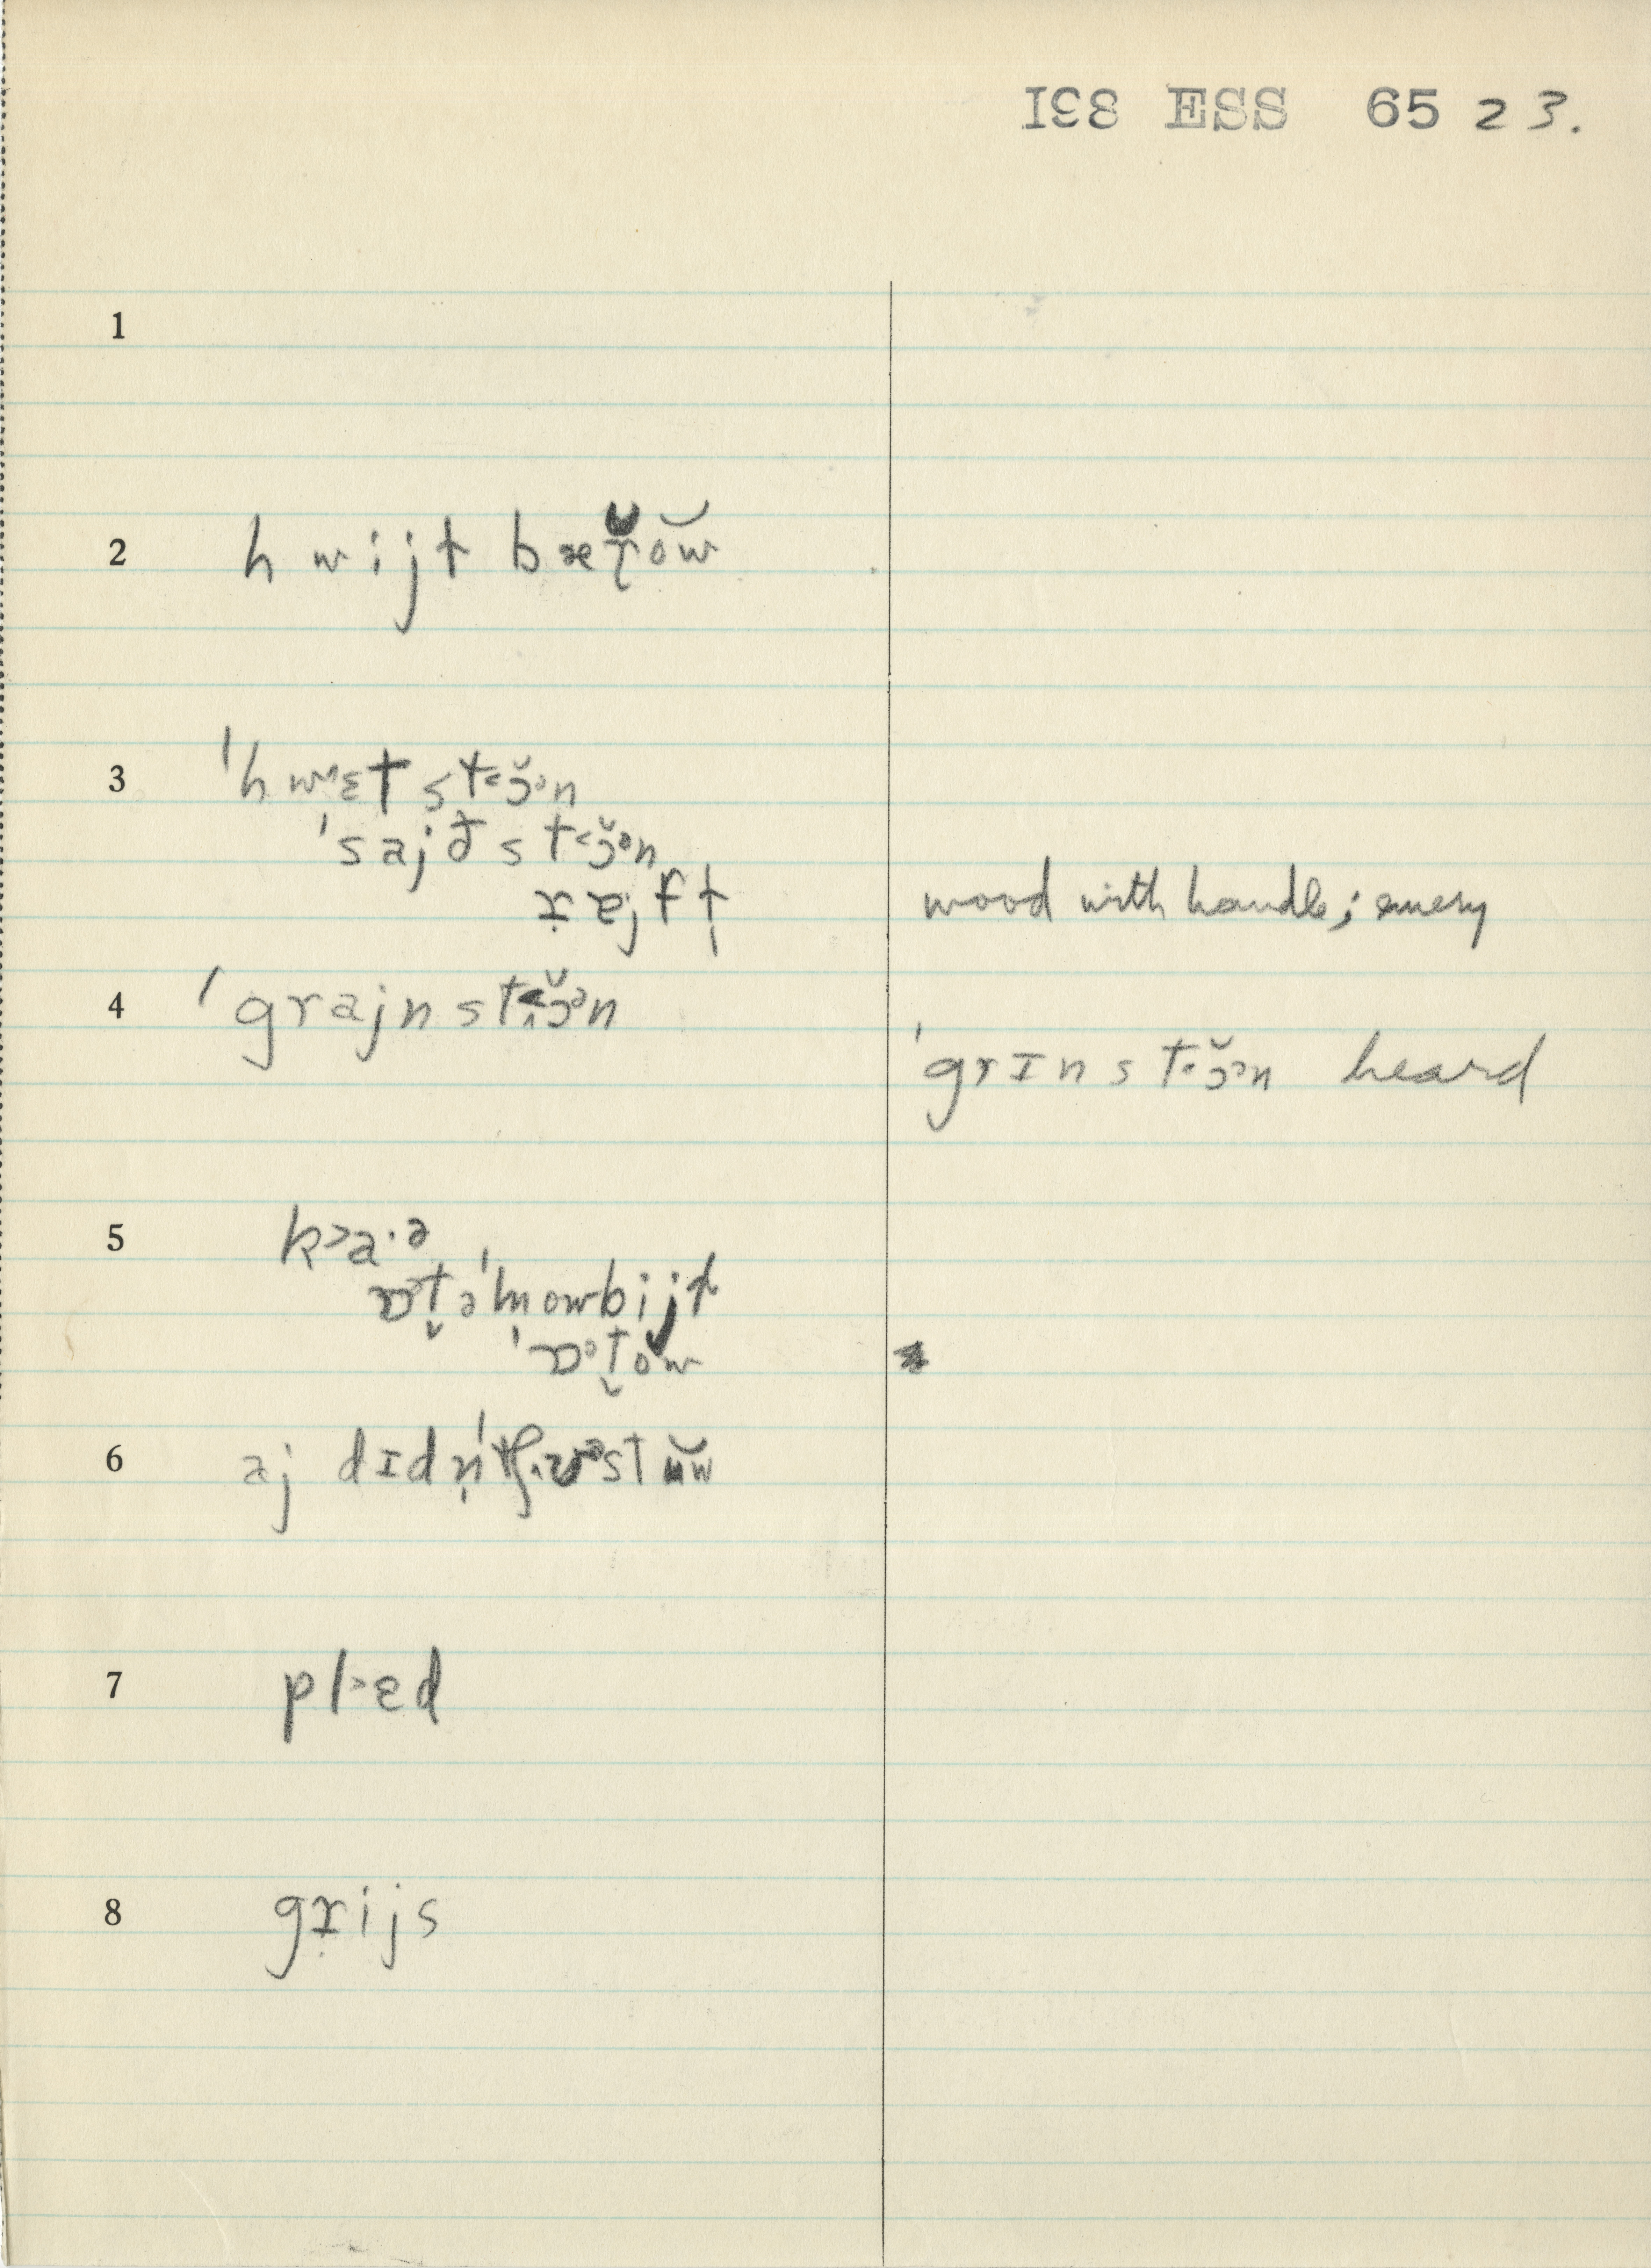 IƐ8 ESS 65 23.
1
2 hwijt bærŏw̆
3 ˈhwɛt st˂ɔ̆ᵊn
ˈsajðst˂ɔ̆ᵊn
rejft wood with handle; emery
4 ˈgrajnst˂ɔ̆ᵊn
ˈgrɪnst˂ɔ̆ᵊn heard
5 k˃a·ə
ɒt̬əˈmowbijt
ˈɒt̬ow
6 aj dɪdn̩
7 pl˃ɛd
8 grijs